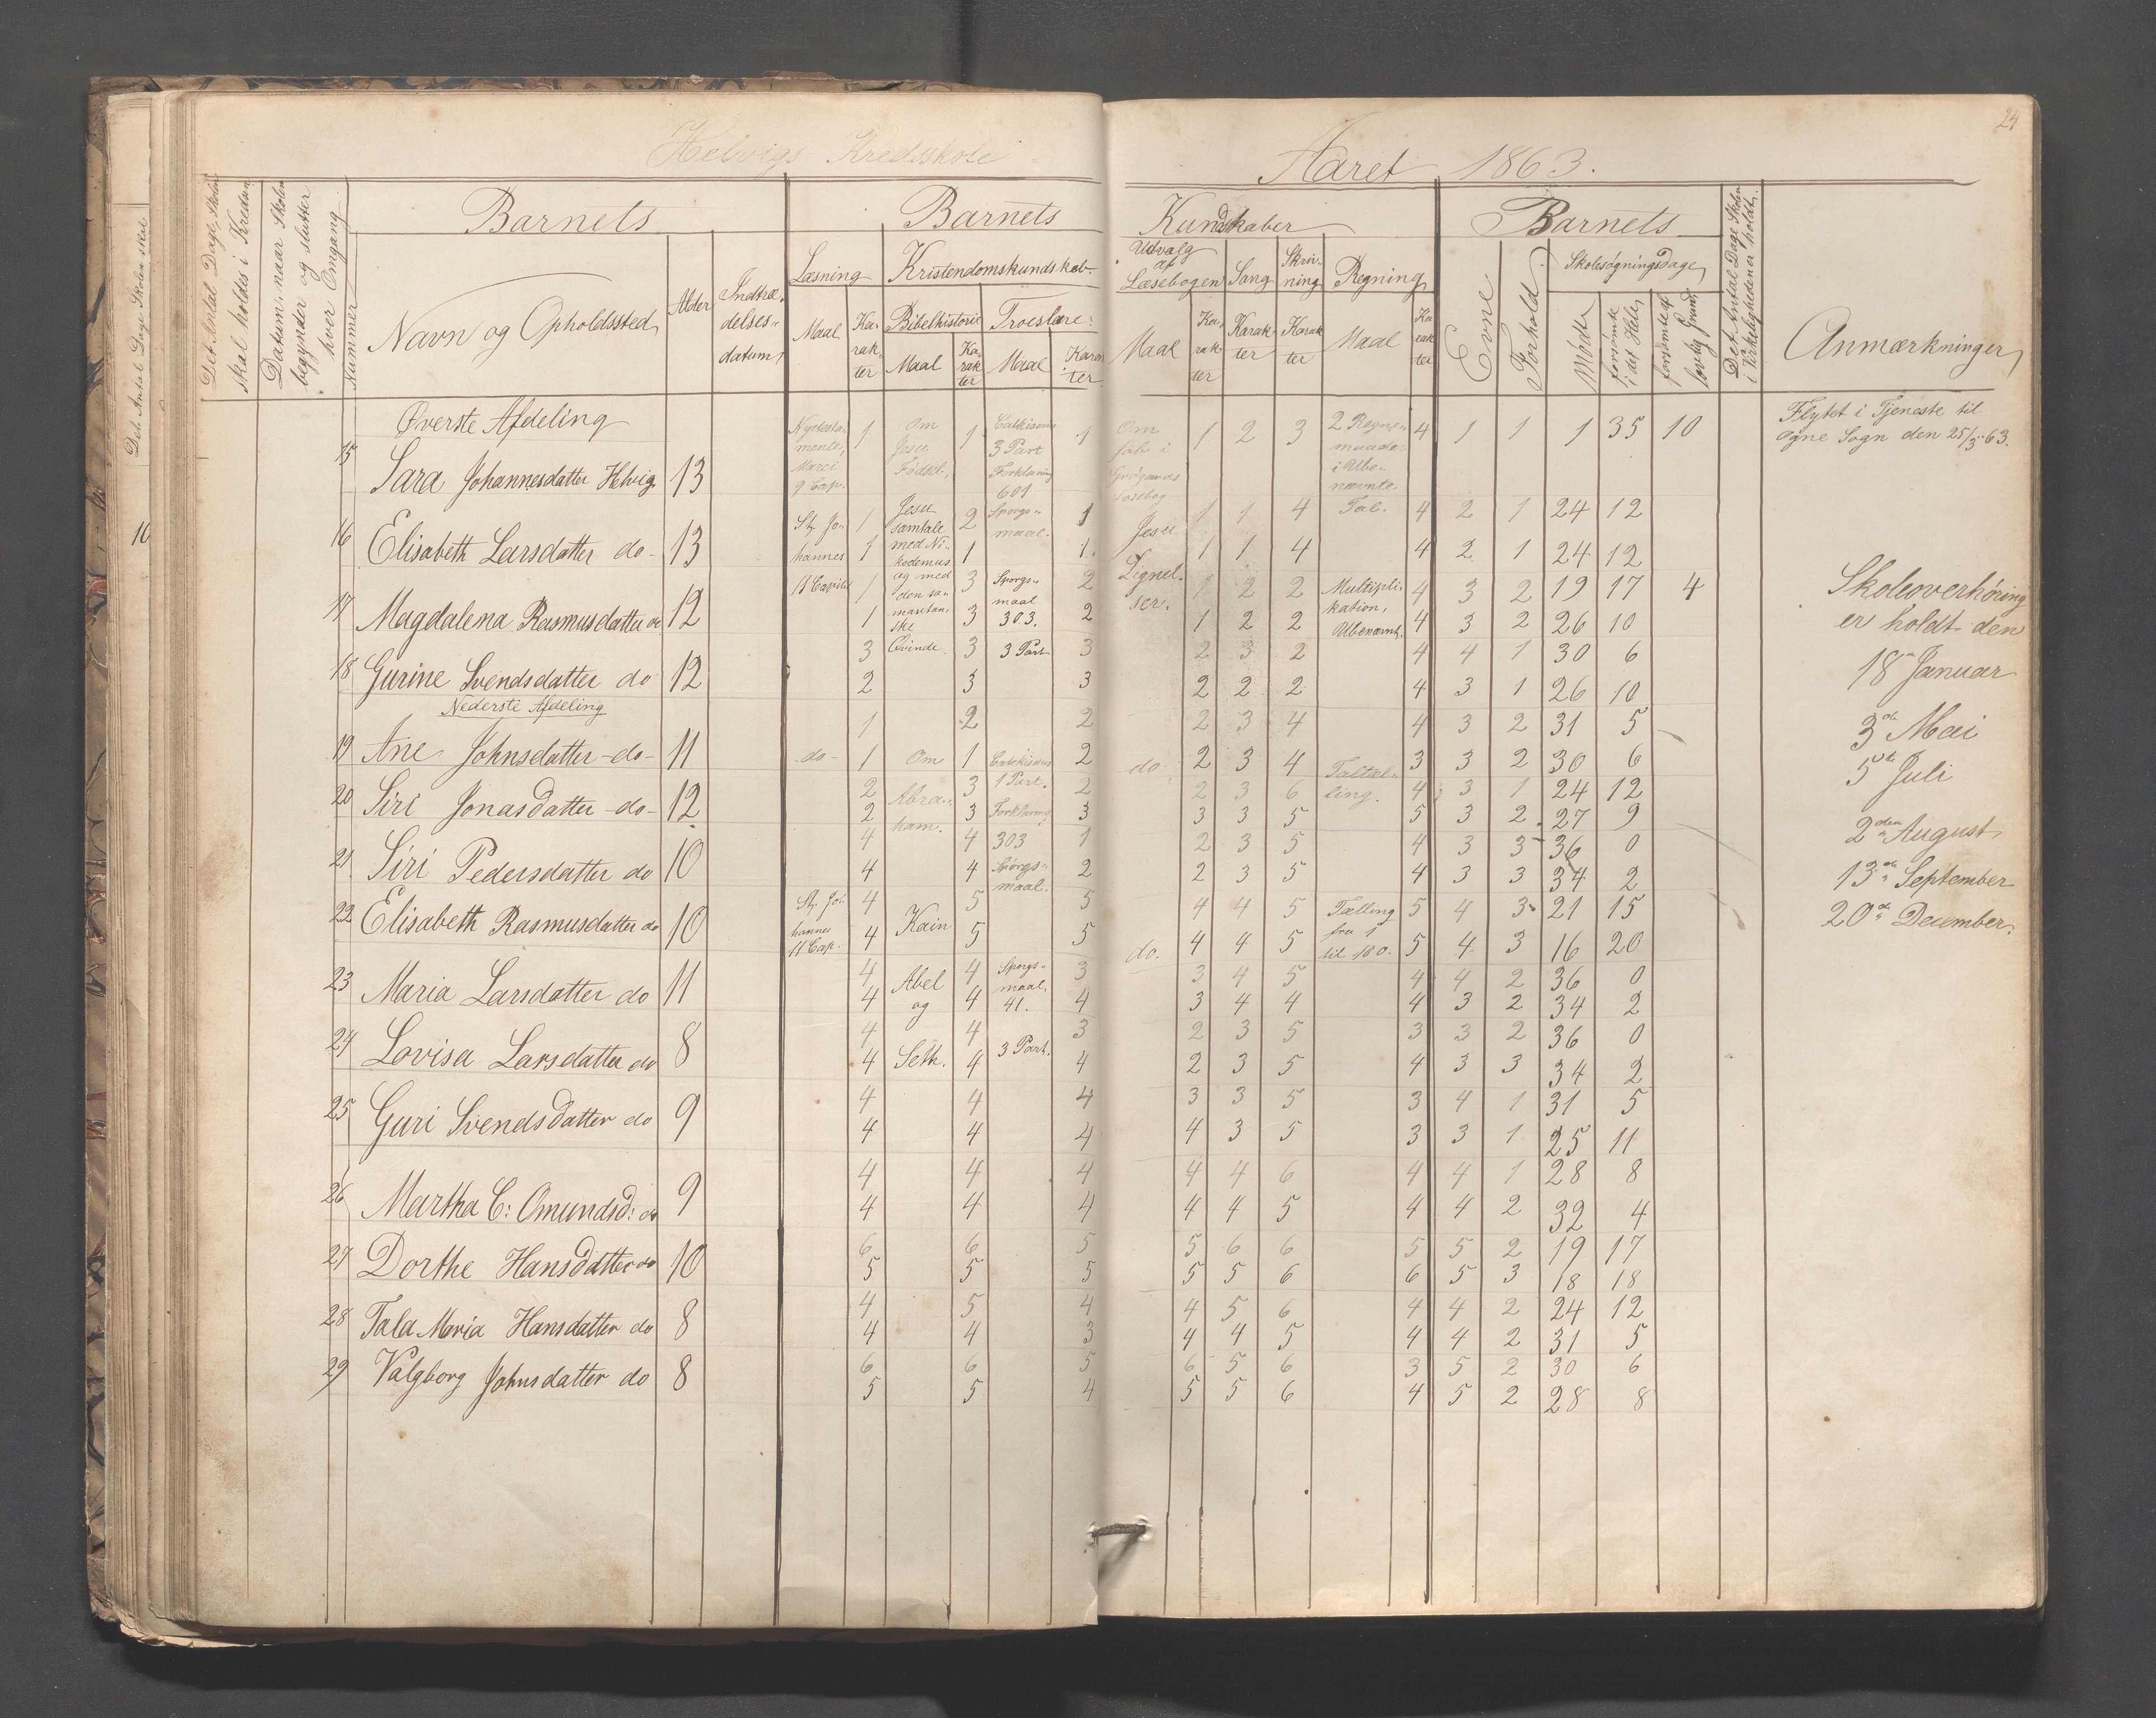 Helvigs Kredsskole
Aaret 1863.
24
Det Antal Dage Skolen skal
10
Det Antal Dage, Skolen
skal holdes i Kredsen
Datum, naar Skolen
begynder og slutter
hver Omgang
Nummer
Barnets
Navn og Opholdssted
Alder
Indtræ-
delses-
datum
Barnets
Læsning
Maal
Ka-
rak-
ter
Kristendomskundskab
Bibelhistorie
Maal
Ka-
rak
ter
Troeslære
Maal
Karak
ter
Kundskaber
Udvalg
af
Læsebogen
Maal
Ka-
rak-
ter
Sang
Karak-
ter
Skriv-
ning
Karak
ter
Regning
Maal
Ka
rak
ter
Barnets
Evne
Forhold
Skolesøgningsdage
Mödte
forsømte
i det Hele
forsømte af
lovlig Grund
Det Antal Dage Skolen
i Virkeligheden er holdt
Anmærkninger
Øverste Afdeling
15 Sara Johannesdatter Helvig 13
1 1 1 1 2 3 4 1 1 1 35 10
Flytet i Tjeneste til
Ogne Sogn den 25/5 63.
16 Elisabeth Larsdatter do 13
1 2 1 1 1 4 4 2 1 24 12
1 1 1 1 1 4 4 2 1 24 12
17 Magdalena Rasmusdatter do 12
1 3 2 1 2 2 4 3 2 19 17 4
1 3 2 1 2 2 4 3 2 26 10
18 Gurine Svendsdatter do 12
3 3 3 2 3 2 4 4 1 30 6
2 3 3 2 2 2 4 3 1 26 10
Nederste Afdeling
19 Ane Johnsdatter do 11
1 2 2 2 3 4 4 3 2 31 5
1 1 2 2 3 4 3 3 2 30 6
20 Siri Jonasdatter do 12
2 3 2 2 3 6 4 3 1 24 12
2 3 3 3 3 5 5 3 2 27 9
21 Siri Pedersdatter do 10
4 4 1 2 3 5 4 3 3 36 0
4 4 2 2 3 5 4 3 3 34 2
22 Elisabeth Rasmusdatter do 10
4 5 5 4 4 5 5 4 3 21 15
4 5 5 4 4 5 5 4 3 16 20
23 Maria Larsdatter do 11
4 4 3 3 4 5 4 4 2 36 0
4 4 4 3 4 4 4 3 2 34 2
24 Lovisa Larsdatter do 8
4 4 3 2 3 5 3 3 2 36 0
4 4 4 2 3 5 4 3 3 34 2
25 Guri Svendsdatter do 9
4 4 4 3 3 5 3 4 1 31 5
4 4 4 4 3 5 3 3 1 25 11
26 Martha C: Omundsd: do 9
4 4 4 4 4 6 4 4 1 28 8
4 4 4 4 4 5 4 4 2 32 4
27 Dorthe Hansdatter do 10
6 6 5 5 6 6 5 5 2 19 17
5 5 5 5 5 6 6 5 3 18 18
28 Tala Maria Hansdatter do 8
4 5 4 4 5 6 4 4 2 24 12
4 4 3 4 4 5 4 4 2 31 5
29 Valgborg Johnsdatter do 8
6 6 5 6 5 6 3 5 2 30 6
5 5 4 5 5 6 4 5 2 28 8
Nytesta-
mente,
Marci
9 Cap.
St. Jo-
hannes
11 Capitel
do
St. Joh
hannes
11 Cap.
Om
Jesu
Fødsel,
Jesu
samtale
med Ni-
kodemus
og med
den sa-
maritan-
ske
Qvinde.
Om
Abra-
ham.
Kain
Abel
og
Seth.
Catkismus
3 Part
Forklaring
601
Sporgs-
maal.
Sporgs-
maal
303.
3 Part
Catekismus
1 Part.
Forklaring
303
Spörgs-
maal.
Sporgs-
maal
41.
3 Part.
Om
i
Jesu
Lignel-
ser.
do
do.
2 Regne-
maade
i Ube-
nævnte
Tal.
Multipli-
kation,
Ubenævnt.
Taltæl-
ling.
Tælling
fra 1
til 100.
Skoleoverhøring
er holdt den
18de Januar
3de Mai
5te Juli
2den August
13de September
20de December.